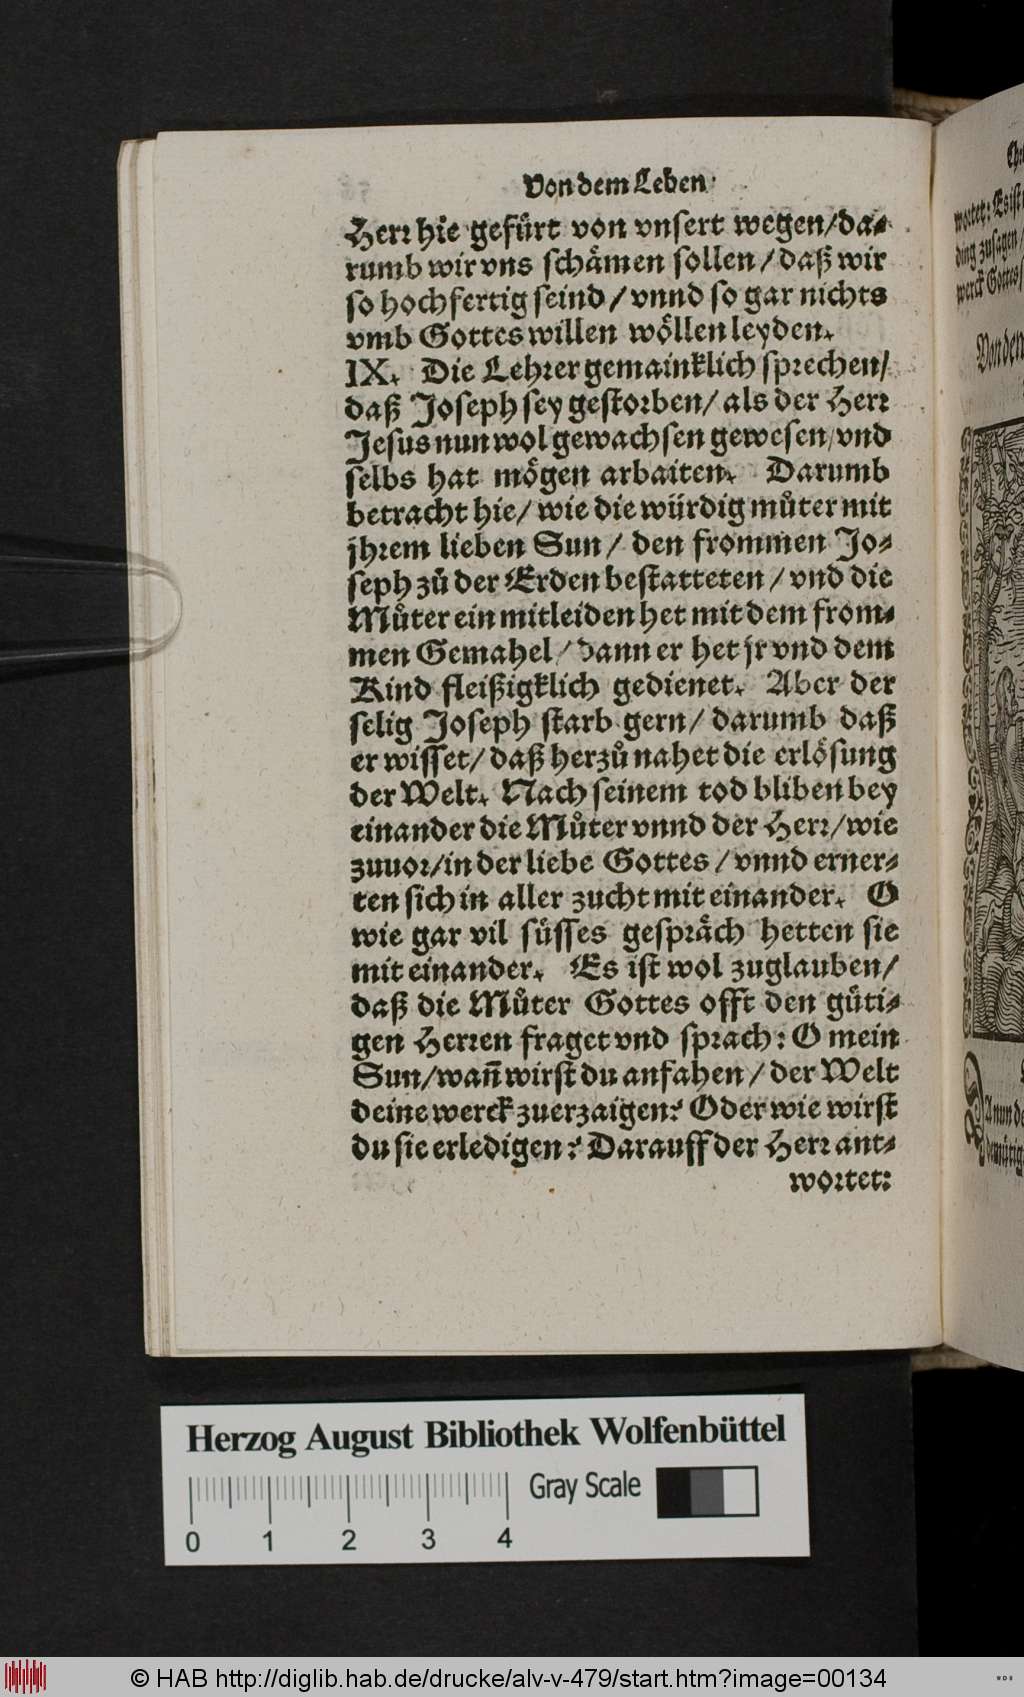 Von dem Leben
Herr hie gefürt von vnsert wegen/da-
rumb wir vns schämen sollen/daß wir
so hochfertig seind/vnnd so gar nichts
vmb Gottes willen wöllen leyden.
IX. Die Lehrer gemainklich sprechen/
daß Joseph sey gestorben/als der Herr
Jesus nun wol gewachsen gewesen/vnd
selbs hat mögen arbaiten. Darumb
betracht hie/wie die würdig můter mit
jhrem lieben Sun/den frommen Jo-
seph zů der Erden bestatteten/vnd die
Můter ein mitleiden het mit dem from-
men Gemahel/dann er het jr vnd dem
Kind fleißigklich gedienet. Aber der
selig Joseph starb gern/darumb daß
er wisset/daß herzů nahet die erlösung
der Welt. Nach seinem tod bliben bey
einander die Můter vnnd der Herr/wie
zuuor/in der liebe Gottes/vnnd erner-
ten sich in aller zucht mit einander. O
wie gar vil süsses gespräch hetten sie
mit einander. Es ist wol zuglauben/
daß die Můter Gottes offt den güti-
gen Herren fraget vnd sprach: O mein
Sun/wañ wirst du anfahen/der Welt
deine werck zuerzaigen? Oder wie wirst
du sie erledigen? Darauff der Herr ant-
wortet:
wortet: Es ist
ding zusagen/
werck Gottes
Von den
Herzog August Bibliothek Wolfenbüttel
0 1 2 3 4
Gray Scale
© HAB http://diglib.hab.de/drucke/alv-v-479/start.htm?image=00134